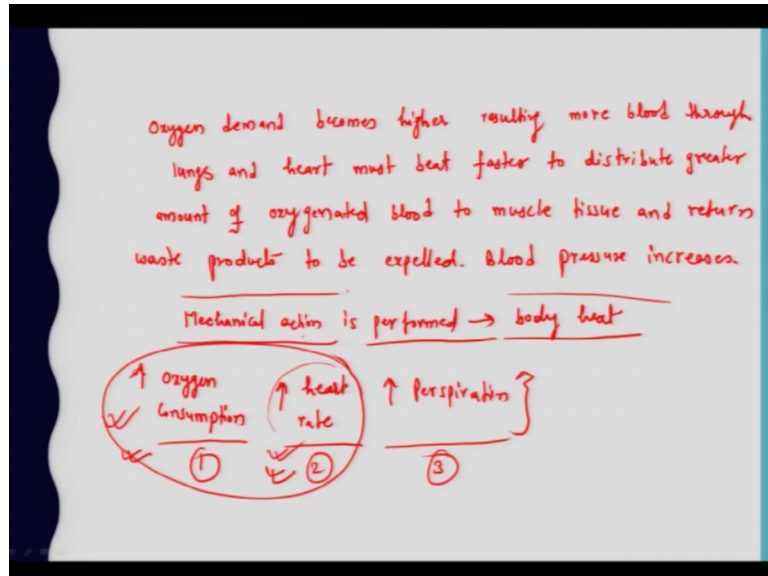 Oxygen demand becomes higher resulting more blood through
lungs and heart must beat faster to distribute greater
amount of oxygenated blood to muscle tissue and return
waste products to be expelled. Blood pressure increases.
Mechanical action is performed → body heat
↑ Oxygen Consumption ↑ heart rate ↑ Perspiration }
① ② ③